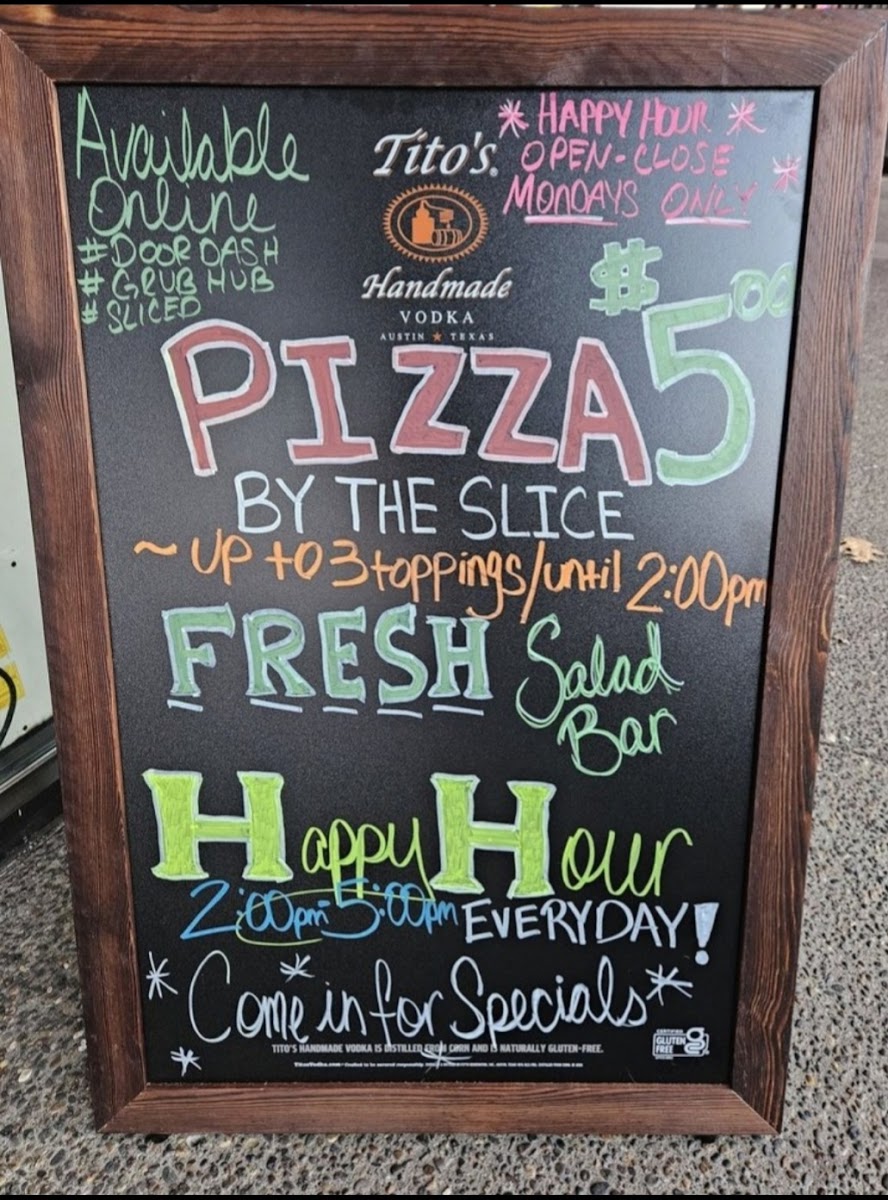 Available
Online
#DOOR DASH
#GRUB HUB
#SLICED
Tito's
Handmade
VODKA
AUSTIN ★ TEXAS
* HAPPY HOUR *
OPEN-CLOSE
MONDAYS ONLY *
$5.00
PIZZA
BY THE SLICE
~ UP to 3 toppings/until 2:00pm
FRESH Salad
Bar
Happy Hour
2:00pm-5:00pm EVERYDAY!
* Come in for Specials *
TITO'S HANDMADE VODKA IS DISTILLED FROM CORN AND IS NATURALLY GLUTEN-FREE.
CERTIFIED
GLUTEN
FREE